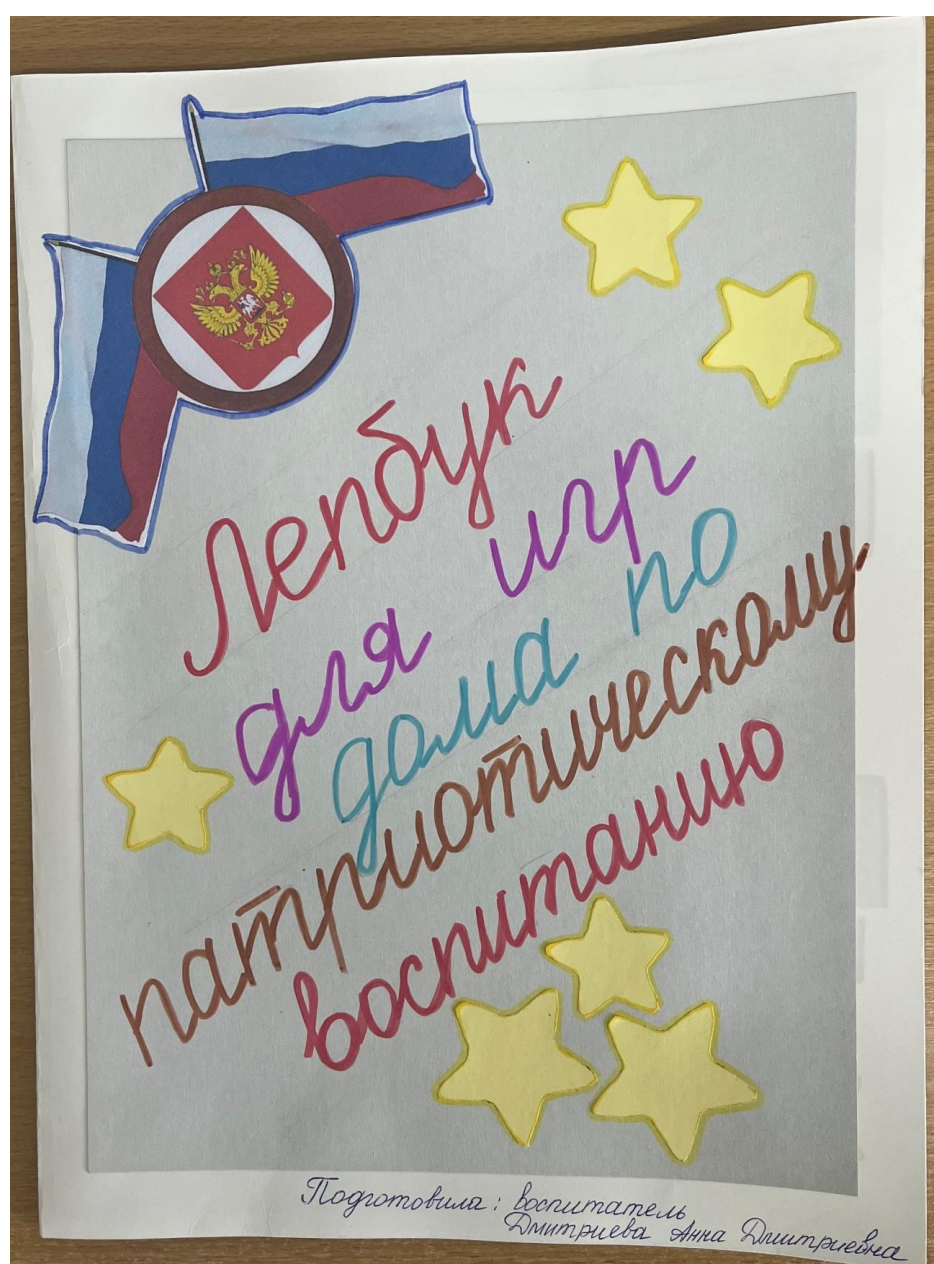 Лепбук
для игр
дома по
патриотическому
воспитанию
Подготовила: воспитатель
Дмитриева Анна Дмитриевна